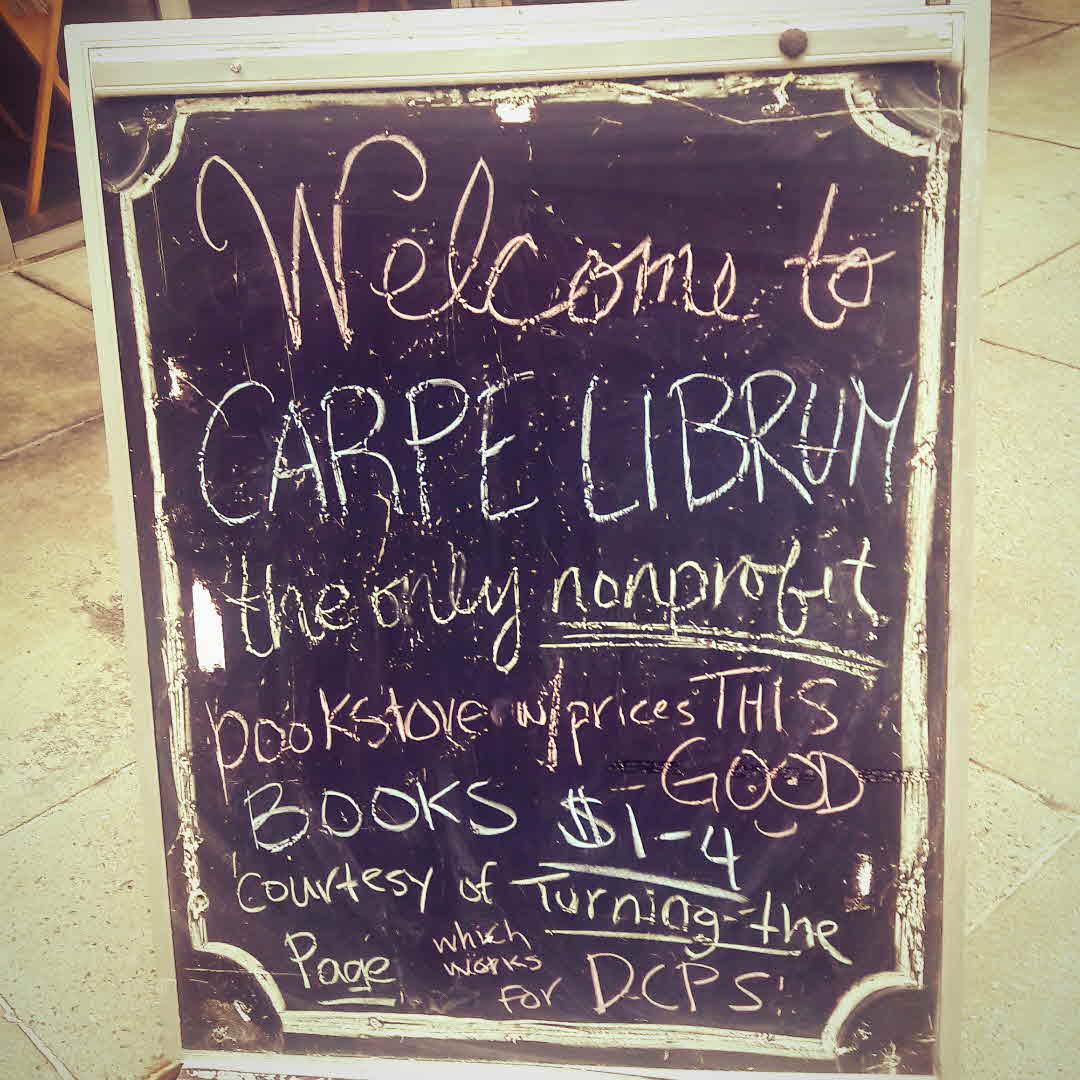 Welcome to
CARPE LIBRUM
the only nonprofit
bookstore w/prices THIS
GOOD
BOOKS $1-4
Courtesy of Turning the
Page which works for DCPS!